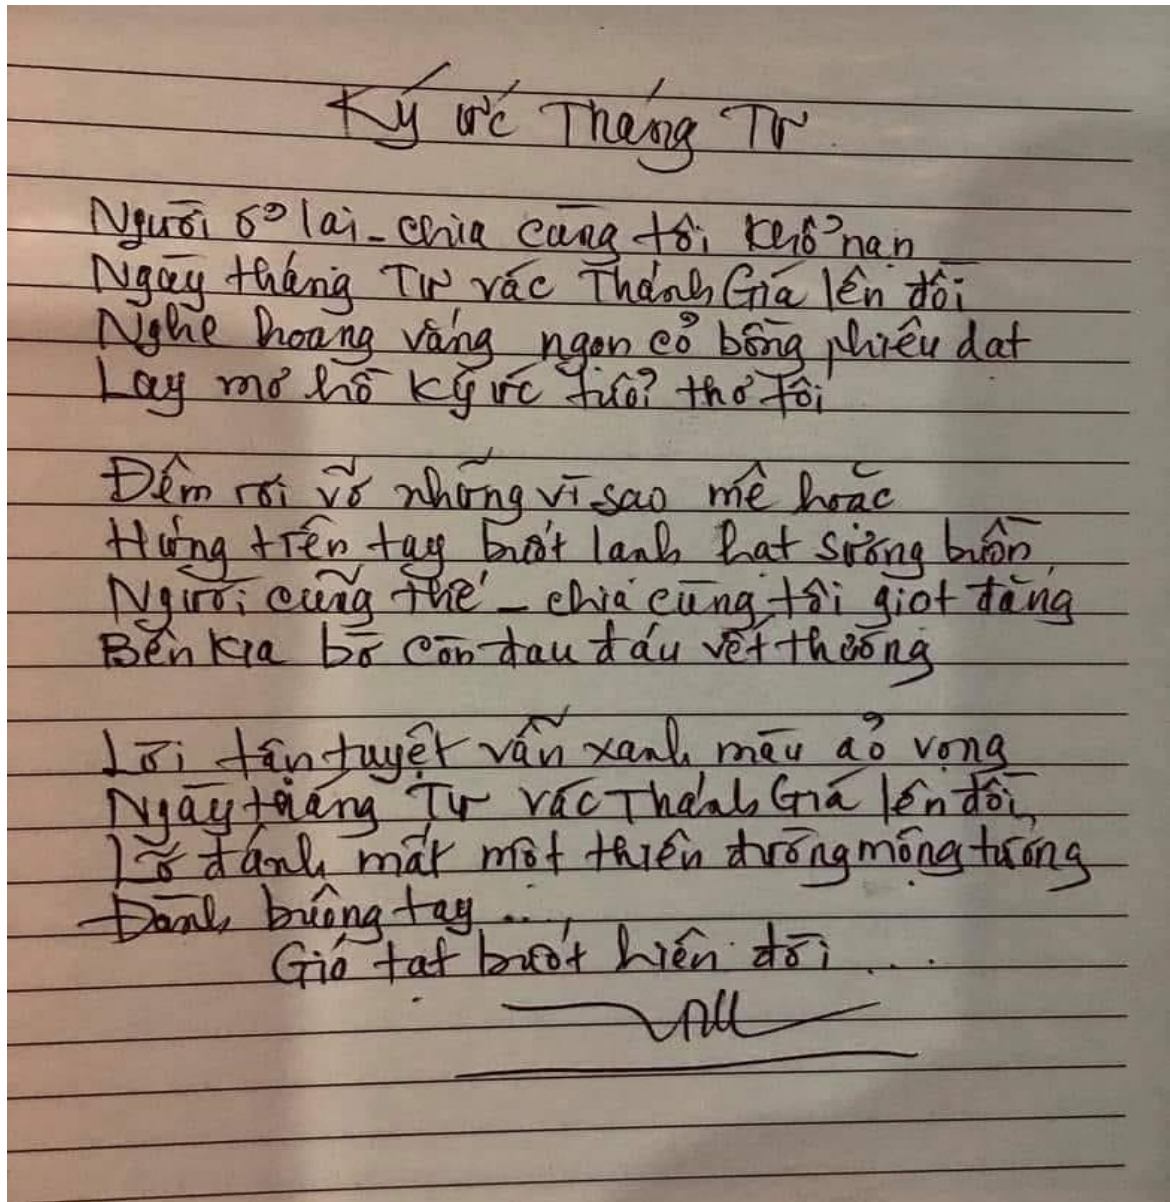 Ký ức Tháng Tư
Người ở lại - chia cùng tôi khổ nạn
Ngày tháng Tư vác Thánh Giá lên đồi
Nghe hoang vắng ngọn cỏ bồng phiêu dạt
Lay mơ hồ ký ức tuổi thơ tôi
Đêm rơi vỡ những vì sao mê hoặc
Hứng trên tay buốt lạnh hạt sương buồn
Người cũng thế - chia cùng tôi giọt đắng
Bên kia bờ còn đau đáu vết thương
Lời tận tuyệt vẫn xanh màu ảo vọng
Ngày tháng Tư vác Thánh Giá lên đồi
Lỡ đánh mất một thiên đường mộng tưởng
Đành buông tay ...,
Gió tạt buốt hiên đời ...